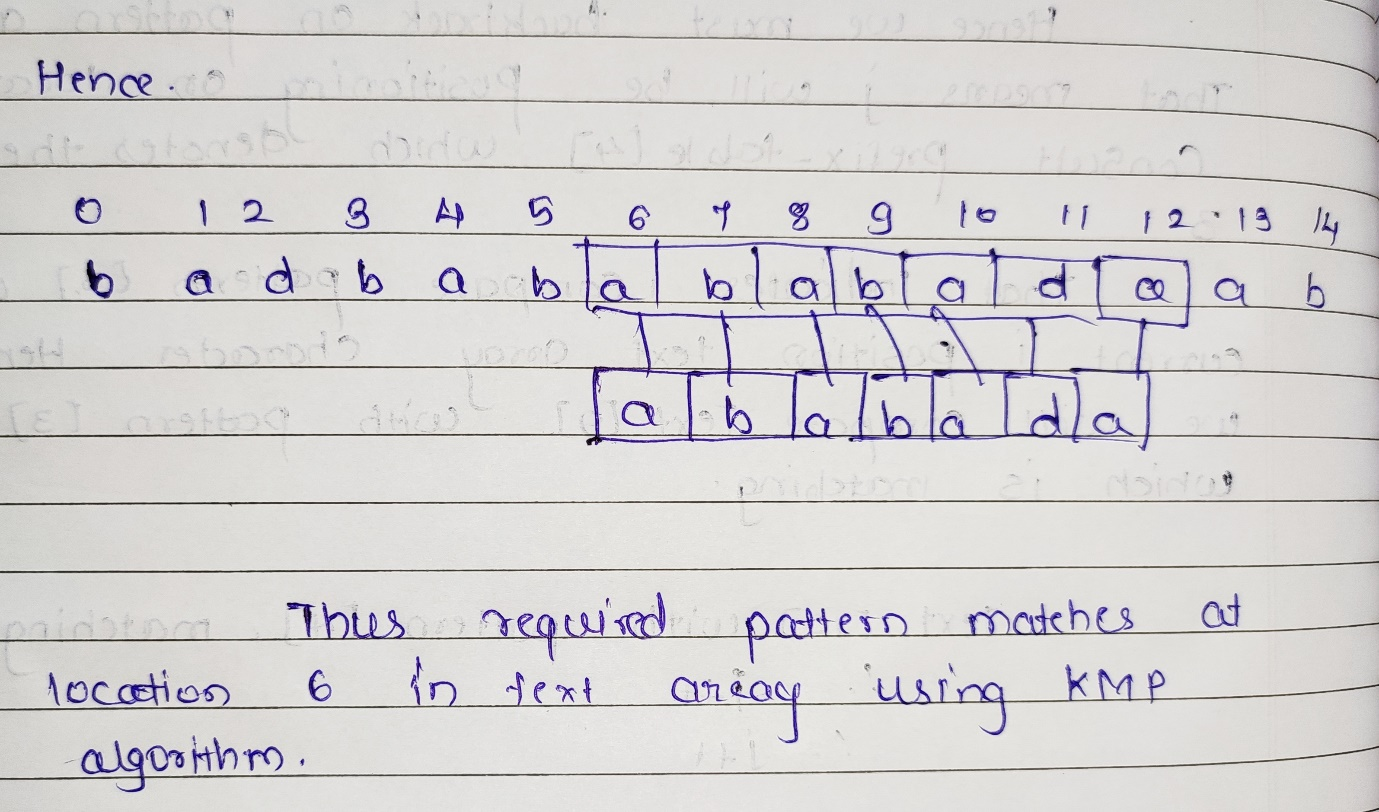 Hence.
0 1 2 3 4 5 6 7 8 9 10 11 12 13 14
b a d b a b a b a b a d a a b
a b a b a d a
Thus required pattern matches at
location 6 in text array using KMP
algorithm.